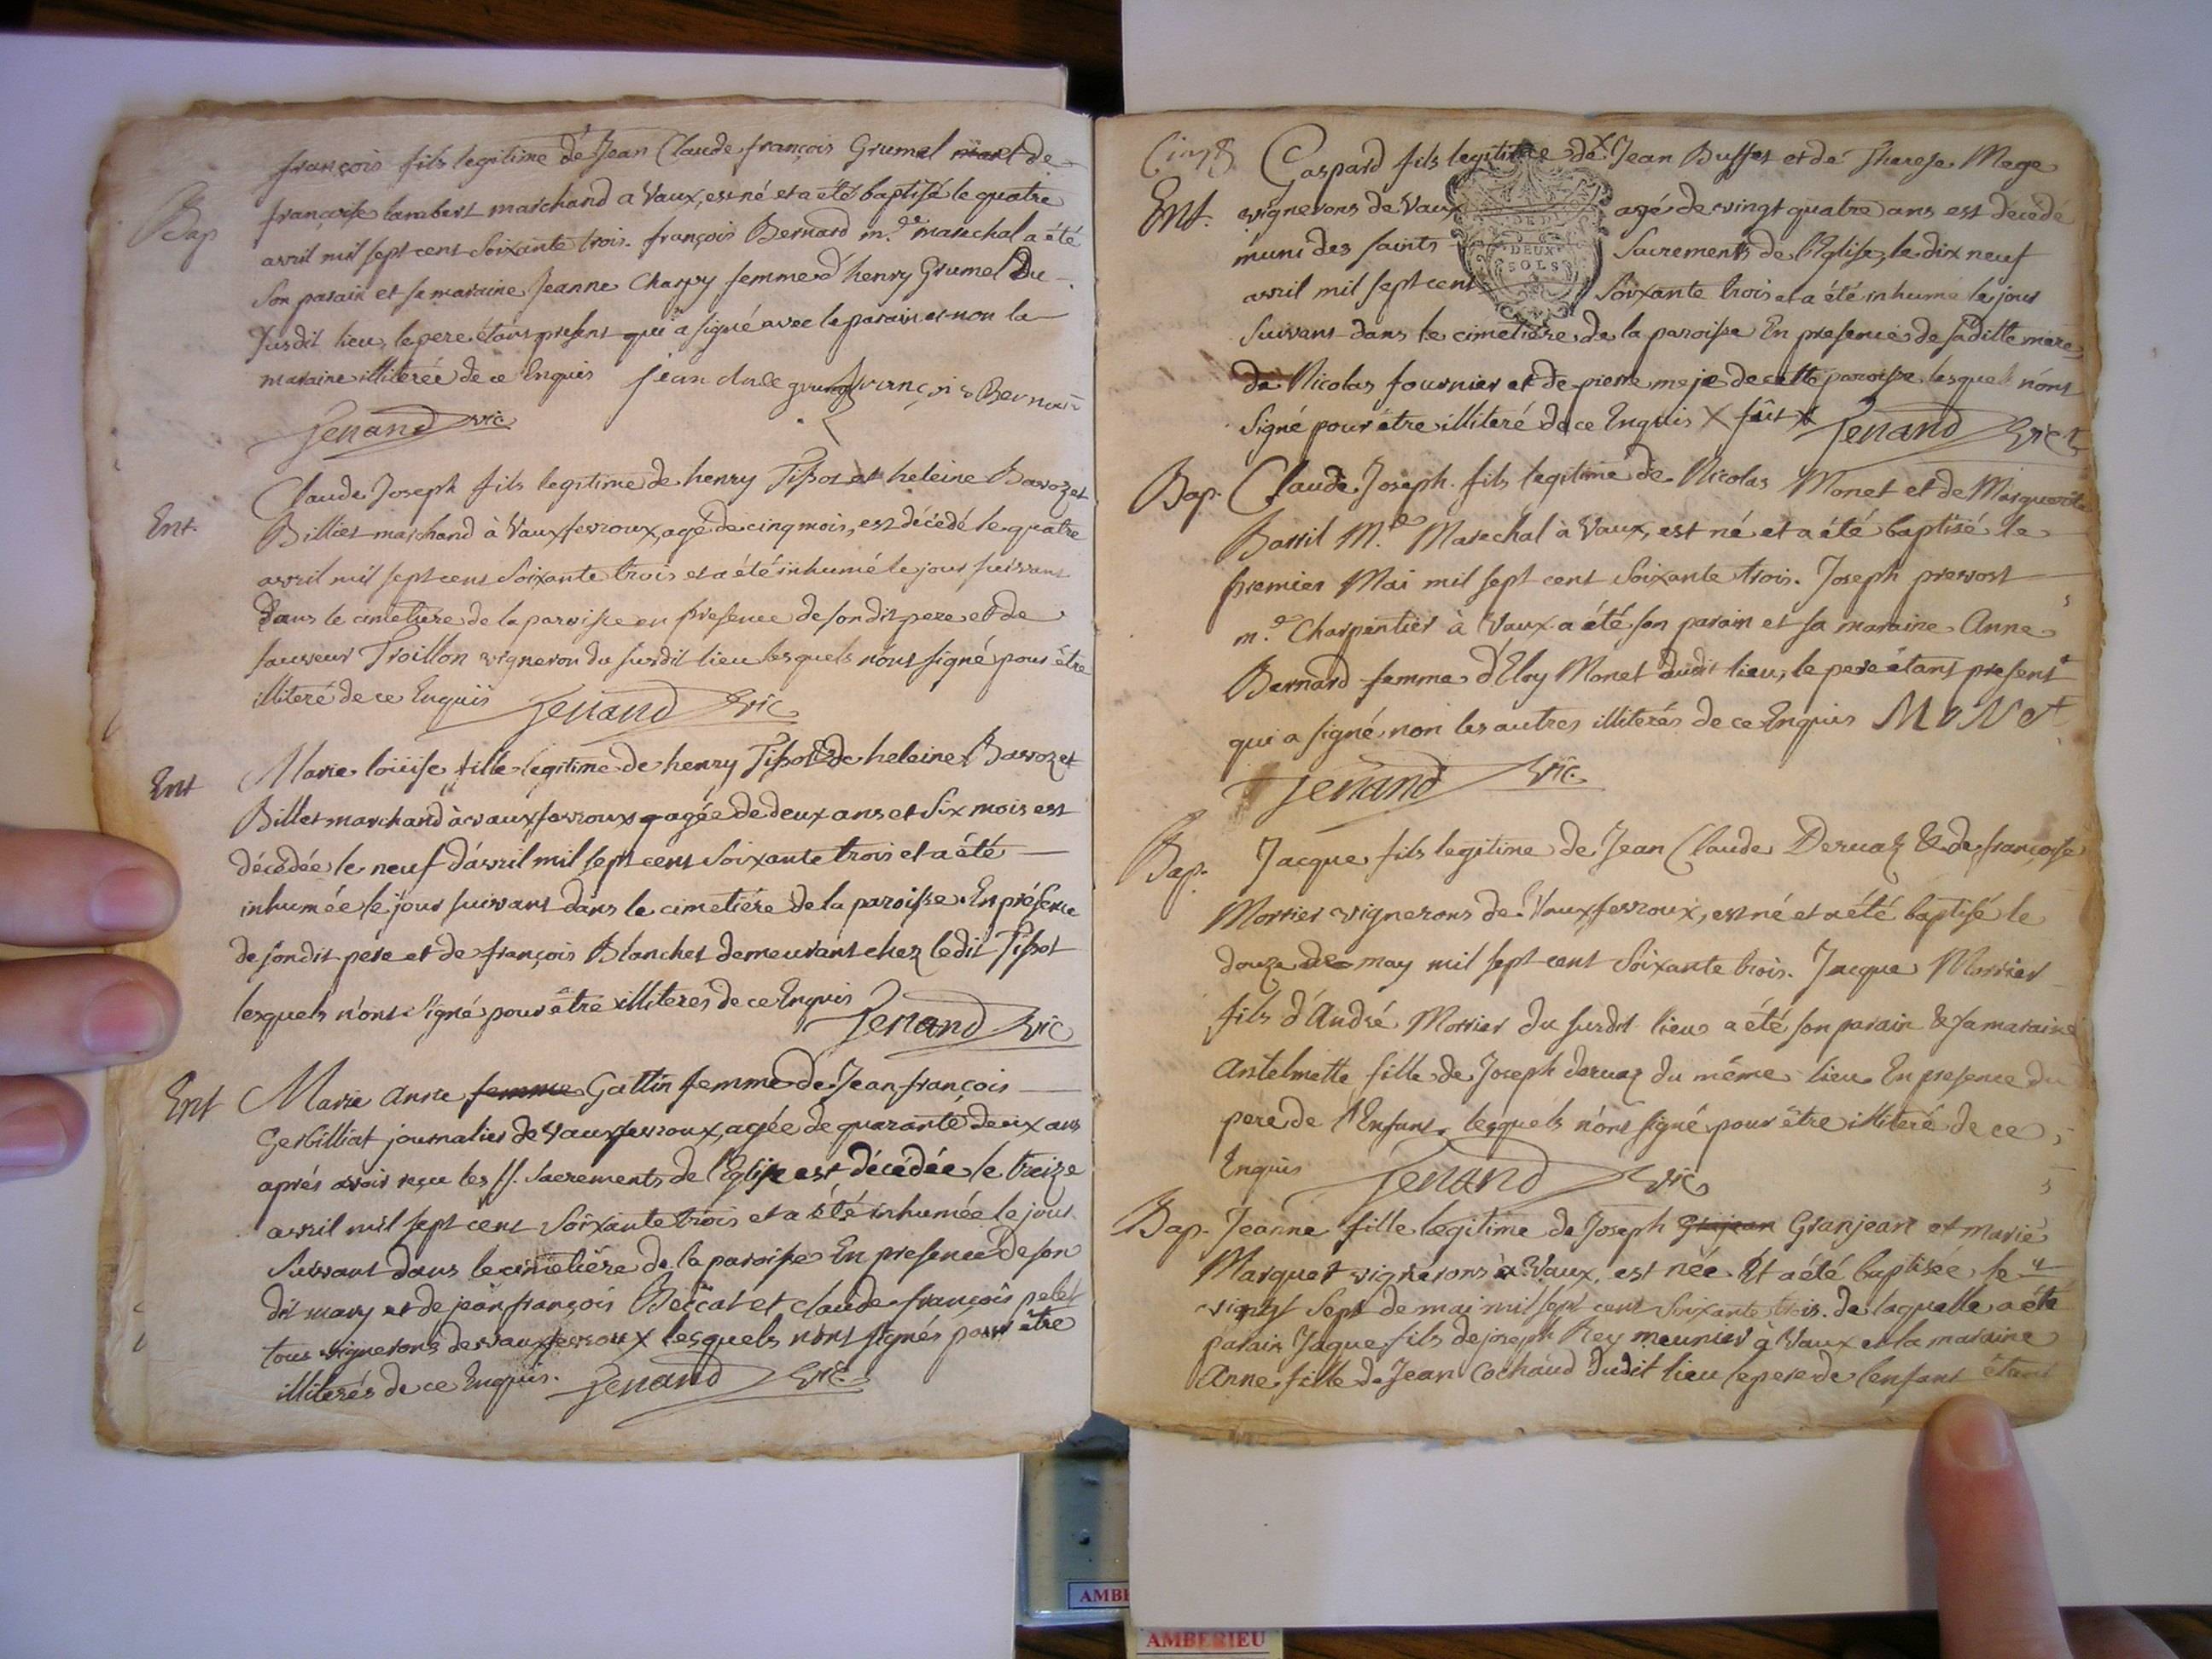 françois fils legitime de Jean Claude françois Grumel et de
Bap
françoise lambert marchand a Vaux, est né et a été baptisé le quatre
avril mil sept cent Soixante trois. françois Bernard m.e marechal a été
Son parain et sa maraine Jeanne Charpy femme d'henry Grumel Du
susdit lieu, le pere étant present qui a signé avec le parain et non la
maraine illiterée de ce Enquis jean claude grumel françois Bernard
Jenand vic
Claude Joseph fils legitime de henry Tissot et heleine Bavozet
Ent.
Billiet marchand à Vauxfevroux, agé de cinq mois, est décédé le quatre
avril mil sept cent Soixante trois et a été inhumé le jour suivant
Dans le cimetiere de la paroisse en presence de son dit pere et de
sauveur Troillon vigneron du susdit lieu lesquels n'ont signé pour être
illiteré de ce Enquis Jenand vic
Ent
Marie loüise fille legitime de henry Tissot & de heleine Bavozet
Billet marchand à vauxfevroux agée de deux ans et Six mois est
décédée le neuf d'avril mil sept cent Soixante trois et a été
inhumée le jour suivant dans le cimetière de la paroisse. En présence
de son dit pere et de françois Blanchet demeurant chez le dit Tissot
lesquels n'ont Signé pour être illiteres de ce Enquis
Jenand vic
Ent Marie Anne femme Gattin femme de Jean françois
Gerbilliat journalier de vauxfevroux, agée de quarante deux ans
aprés avoir reçu les SS. Sacrements de l'Eglise est décédée le treize
avril mil sept cent Soixante trois et a été inhumée le jour
Suivant dans le cimetière de la paroisse En presence de son
dit mary et de jean françois Beccat et claude françois pelet
tous vignerons de vauxfevroux lesquels n'ont signés pour être
illiterés de ce Enquis. Jenand vic
Gaspard fils legitime de Jean Buffet et de Therese Mege
Ent. vignerons de Vaux agé de vingt quatre ans est décédé
muni des saints Sacrements de l'Eglise, le dix neuf
DEUX
SOLS
avril mil sept cent Soixante trois et a été inhumé le jour
Suivant dans le cimetière de la paroisse En presence de sa ditte mere
de Nicolas fournier et de pierre meje de cette paroisse lesquels n'ont
Signé pour être illiteré de ce Enquis X Jenand vic
Bap. Claude Joseph fils legitime de Nicolas Monet et de Marguerite
Barril M.e Marechal à Vaux, est né et a été baptisé le
premier Mai mil sept cent Soixante trois. Joseph prevost
m.e Charpentier à Vaux a été son parain et sa maraine Anne
Bernard femme d'Eloy Monet dudit lieu, le pere étant present
qui a signé, non les autres illiterés de ce Enquis MoNet
Jenand vic.
Bap. Jacque fils legitime de Jean Claude Deruaz & de françoise
Morrier vignerons de Vauxfevroux, est né et a été baptisé le
douze de may mil sept cent Soixante trois. Jacque Morrier
fils d'André Morrier du susdit lieu a été son parain & sa maraine
Antelmette fille de Joseph deruaz du même lieu En presence du
pere de l'Enfant, lesquels n'ont signé pour être illiteré de ce
Enquis Jenand vic
Bap. Jeanne fille legitime de Joseph Granjean Granjean et marie
Marquet vignerons à Vaux, est née Et a été baptisée le
vingt Sept de mai mil sept cent Soixante trois. de laquelle a été
parain Jaque fils de joseph Rey meunier à Vaux et la maraine
Anne fille de Jean Cochaud dudit lieu le pere de l'enfant étant
AMBE
AMBERIEU